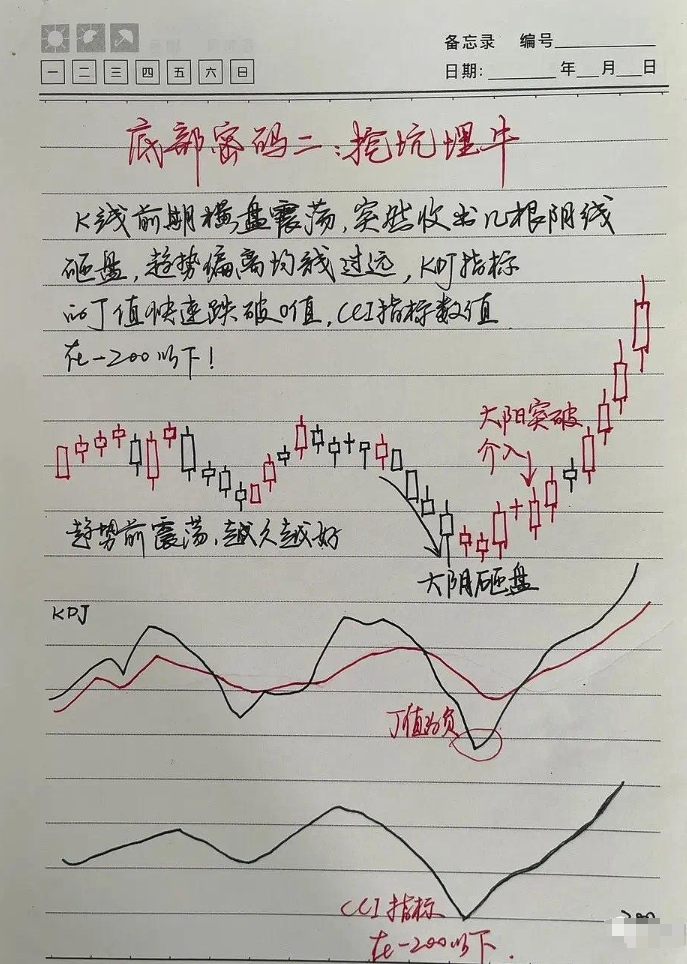 备忘录 编号
日期: 年 月 日
一 二 三 四 五 六 日
底部密码二:挖坑埋牛
K线前期横盘震荡,突然收出几根阴线
砸盘,趋势偏离均线过远,KDJ指标
的J值快速跌破0值,CCI指标数值
在-200以下!
大阳突破
介入
趋势前震荡,越久越好
大阴砸盘
KDJ
J值为负
CCI指标
在-200以下.